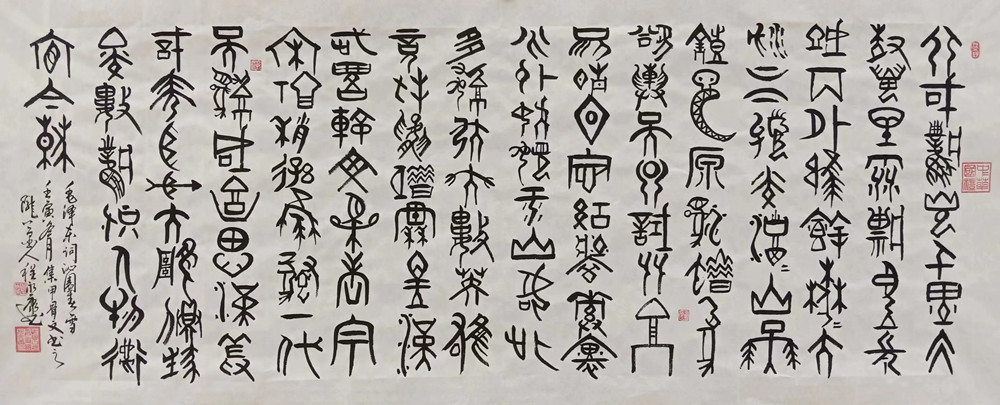 北国风光千里冰
封万里雪飘望长
城内外惟余莽莽大
河上下顿失滔滔山舞
银蛇原驰蜡象
欲与天公试比高
须晴日看红装素裹
分外妖娆江山如此
多娇引无数英雄
竞折腰惜秦皇汉
武略输文采唐宗
宋祖稍逊风骚一代
天骄成吉思汗只
识弯弓射大雕俱往
矣数风流人物还
看今朝
毛泽东词沁园春雪
壬寅月集甲骨文书之